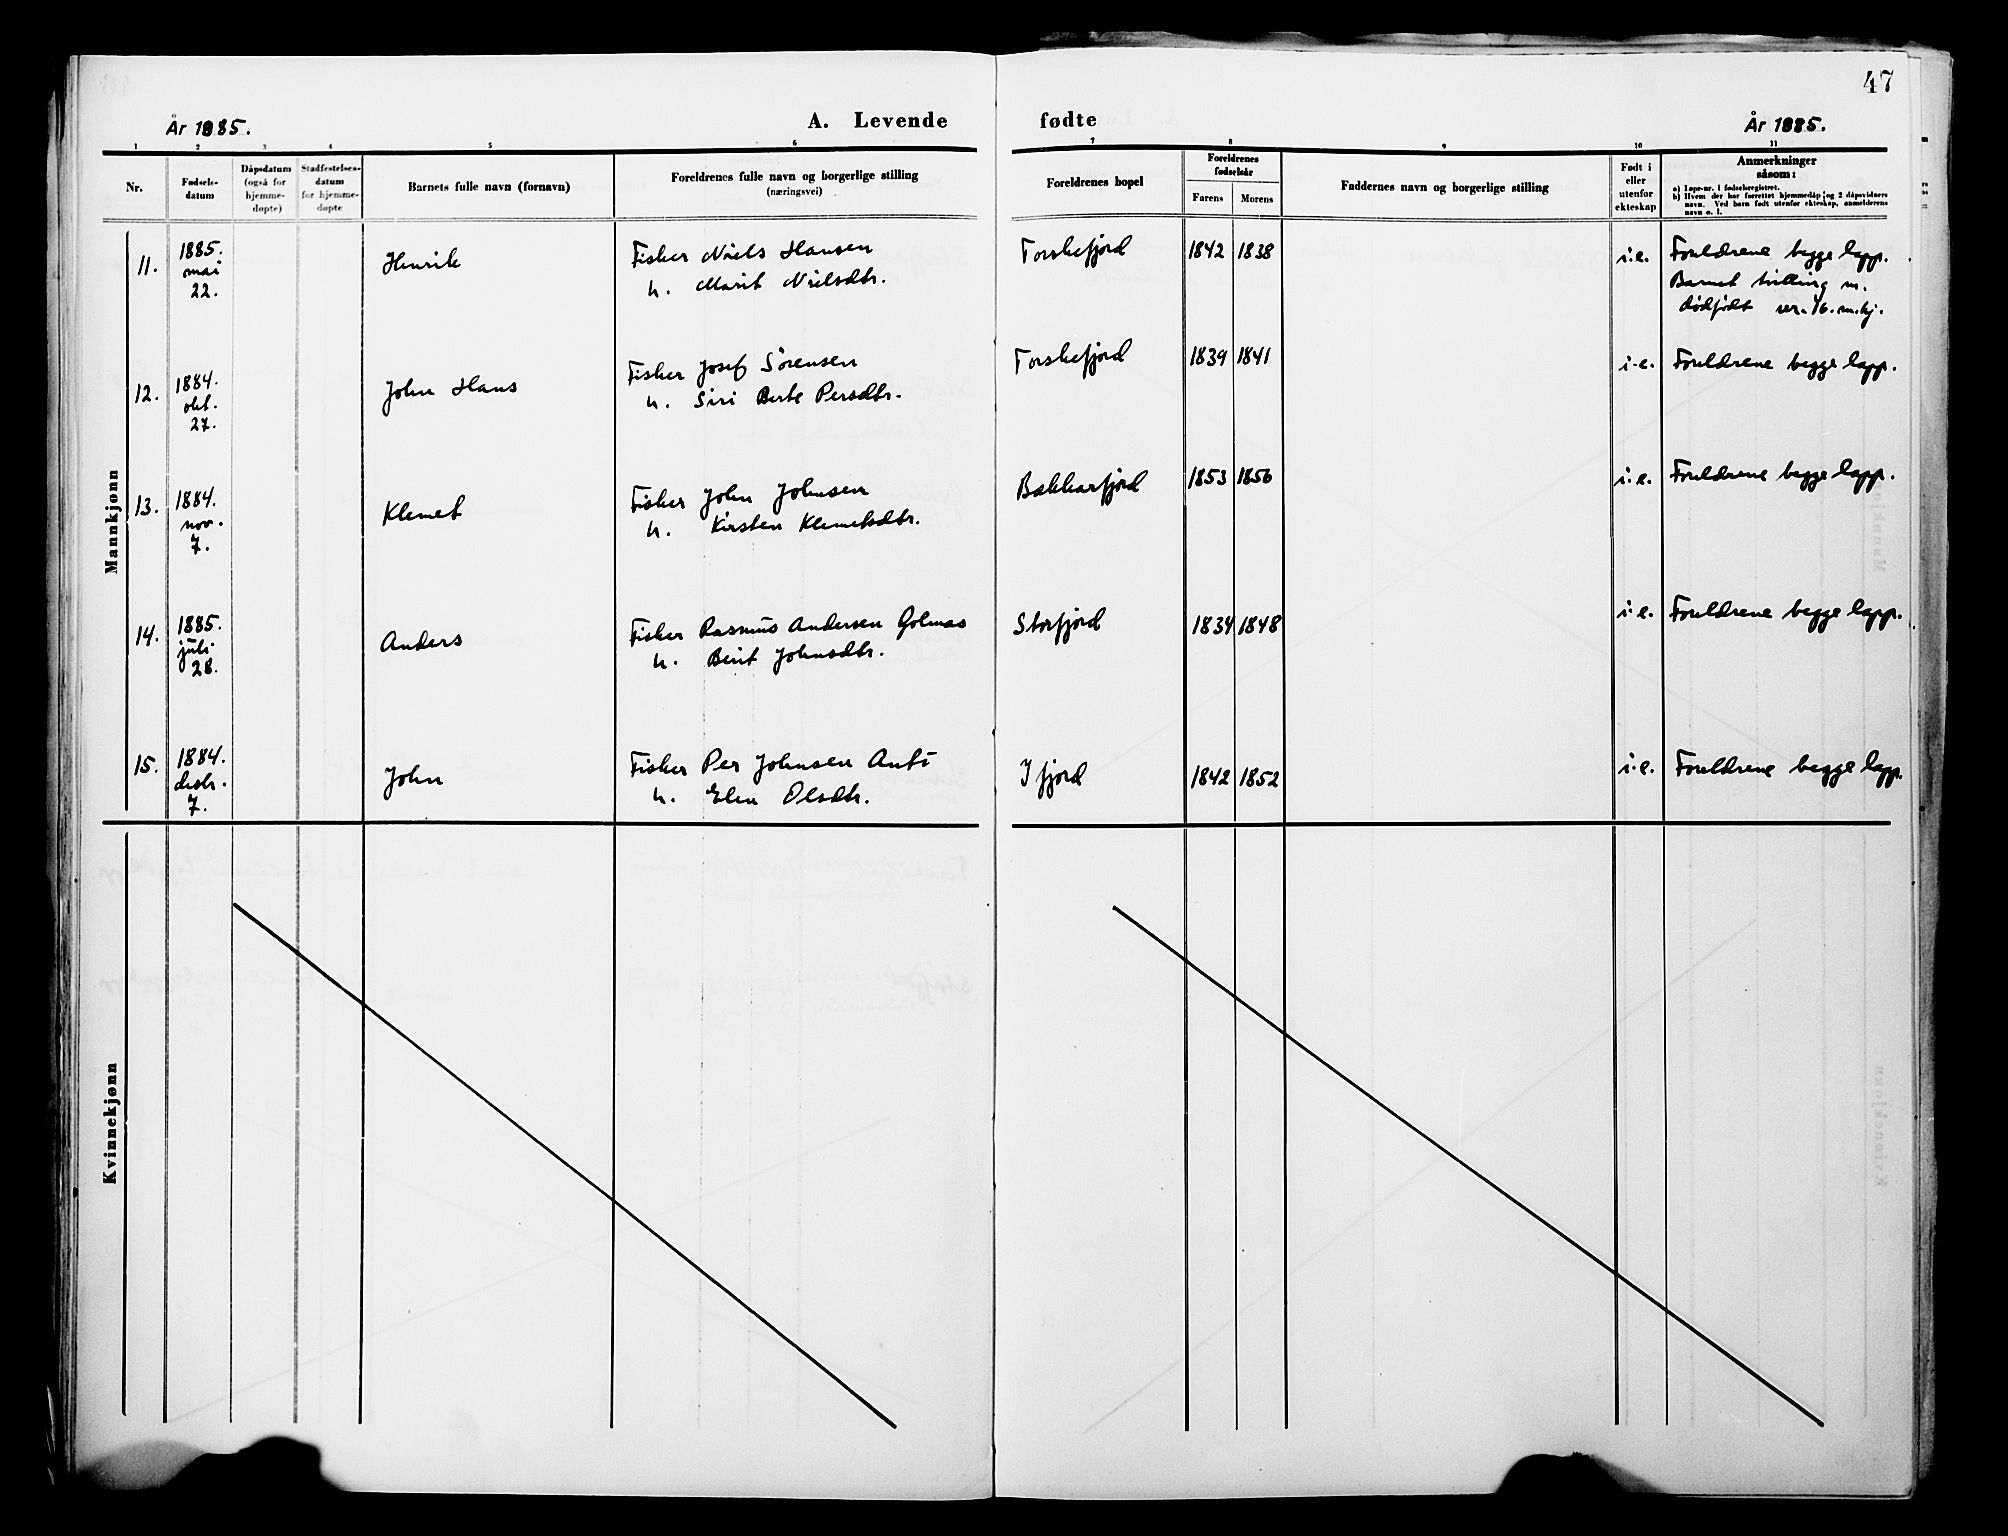 47
År 1885.
A. Levende
fødte
År 1885.
1 2 3 4 5 6 7 8 9 10 11
Nr.
Fødsels-
datum
Dåpsdatum
(også for
hjemme-
døpte)
Stadfestelses-
datum
for hjemme-
døpte
Barnets fulle navn (fornavn)
Foreldrenes fulle navn og borgerlige stilling
(næringsvei)
Foreldrenes bopel
Foreldrenes
fødselsår
Farens
Morens
Faddernes navn og borgerlige stilling
Født i
eller
utenfor
ekteskap
Anmerkninger
såsom:
a) Løpe-nr. i fødselsregistret.
b) Hvem der har forrettet hjemmedåp og 2 dåpsvidners
navn. Ved barn født utenfor ekteskap, anmelderens
navn o. l.
Mannkjønn
11.
1885.
mai
22.
Henrik
Fisker Niels Hansen
h. Marit Nielsdtr.
Torskefjord
1842 1838
i.e.
Foreldrene begge lapp.
Barnet tvilling m.
dødfødt nr. 16. m.kj.
12.
1884.
okt.
27.
John Hans
Fisker Josef Sörensen
h. Siri Berte Persdtr.
Torskefjord
1839 1841
i.e.
Foreldrene begge lapp.
13.
1884.
nov.
7.
Klemet
Fisker John Johnsen
h. Kirsten Klemetsdtr.
Bakkarfjord
1853 1856
i.e.
Foreldrene begge lapp.
14.
1885.
juli.
28.
Anders
Fisker Rasmus Andersen Golmas
h. Berit Johnsdtr.
Storfjord
1834 1848
i.e.
Foreldrene begge lapp.
15.
1884.
desbr.
7.
John
Fisker Per Johnsen Anti
h. Elen Olsdtr.
Ifjord
1842 1852
i.e.
Foreldrene begge lapp.
Kvinnekjønn